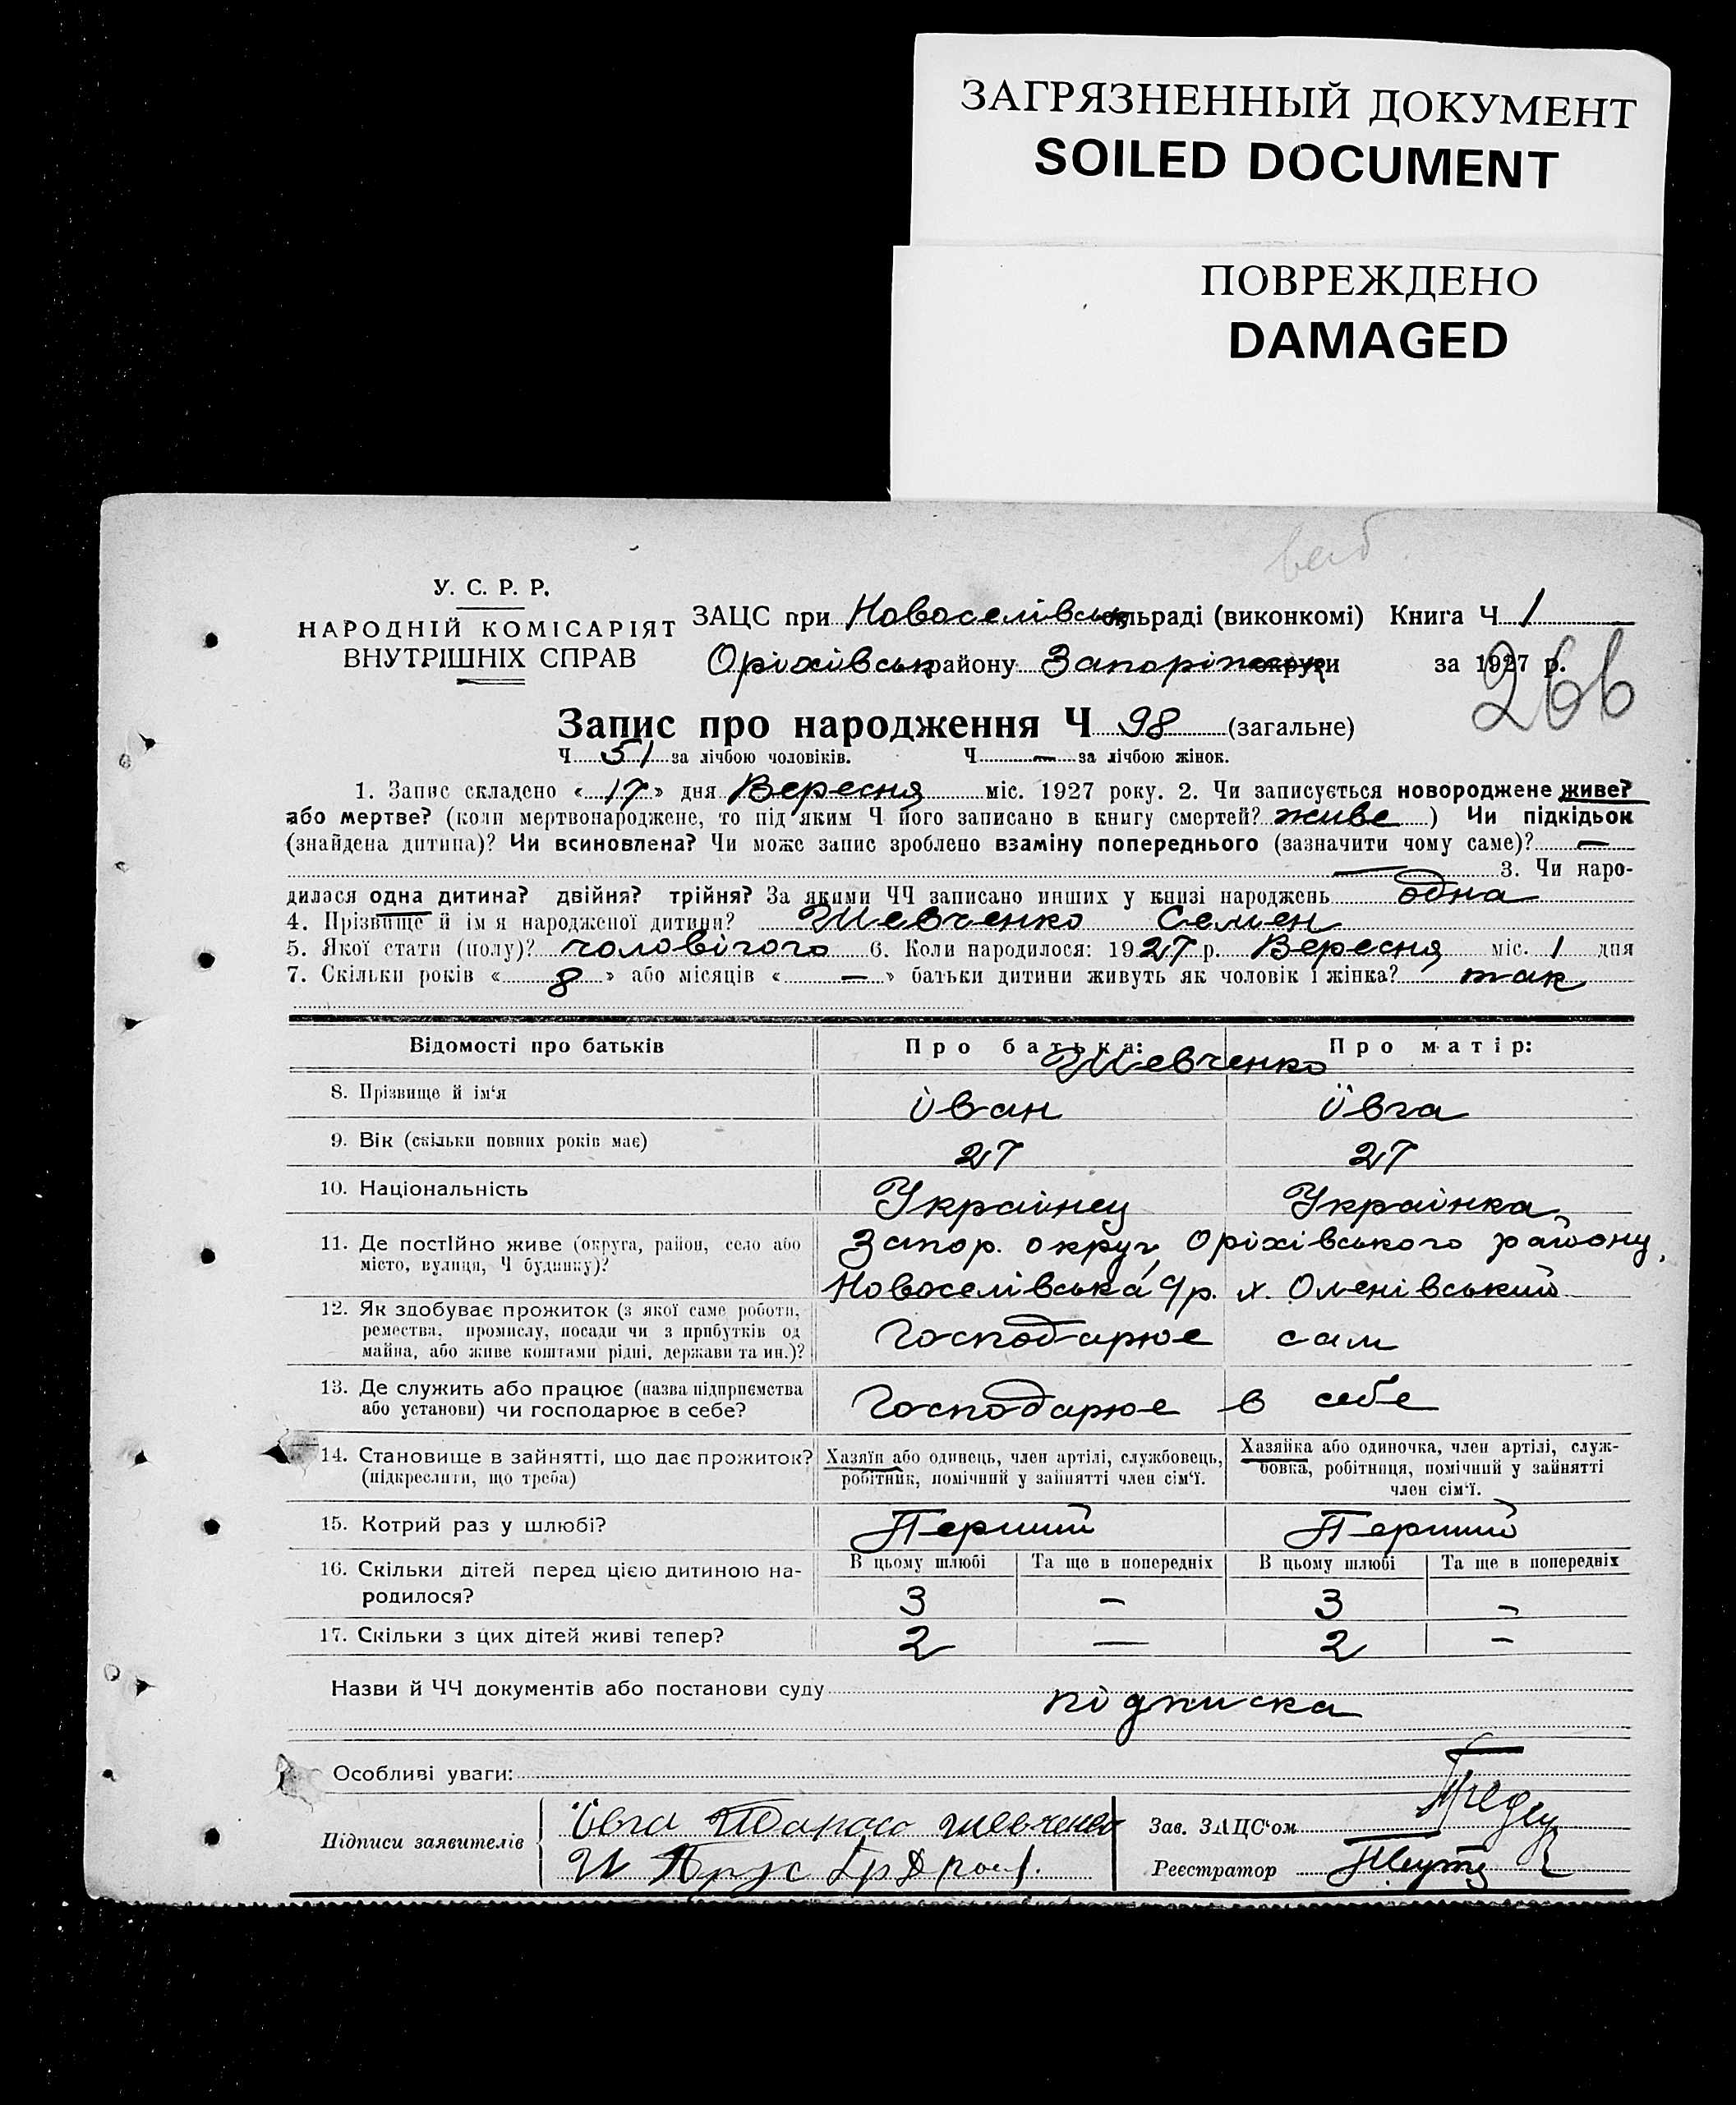 ЗАГРЯЗНЕННЫЙ ДОКУМЕНТ
SOILED DOCUMENT
ПОВРЕЖДЕНО
DAMAGED
У. С. Р. Р.
НАРОДНІЙ КОМІСАРІЯТ
ВНУТРІШНІХ СПРАВ
ЗАЦС при Новоселівськ сільраді (виконкомі) Книга Ч 1
Оріхівськ району Запоріжськ округи за 1927 р.
266
Запис про народження Ч 98 (загальне)
Ч 51 за лічбою чоловіків. Ч — за лічбою жінок.
1. Запис складено « 17 » дня Вересня міс. 1927 року. 2. Чи записується новороджене живе?
або мертве? (коли мертвонароджене, то під яким Ч його записано в книгу смертей? живе ) Чи підкідьок
(знайдена дитина)? Чи всиновлена? Чи може запис зроблено взаміну попереднього (зазначити чому саме)? —
— 3. Чи наро-
дилася одна дитина? двійня? трійня? За якими ЧЧ записано инших у книзі народжень одна
4. Прізвище й ім я народженої дитини? Шевченко Семен
5. Якої стати (полу)? чоловічого 6. Коли народилося: 1927 р. Вересня міс. 1 дня
7. Скільки років « 8 » або місяців « — » батьки дитини живуть як чоловік і жінка? так
Відомості про батьків Про батька: Про матір:
Шевченко
8. Прізвище й ім'я Іван Івга
9. Вік (скільки повних років має) 27 27
10. Національність Українец Українка
11. Де постійно живе (округа, район, село або місто, вулиця, Ч будинку)? Запор. округ, Оріхівського району,
Новоселівська с/р. х. Оленівський
12. Як здобуває прожиток (з якої саме роботи,
ремества, промислу, посади чи з прибутків од
майна, або живе коштами рідні, держави та ин.)? Господарює сам
13. Де служить або працює (назва підприємства
або установи) чи господарює в себе? Господарює в себе
14. Становище в зайнятті, що дає прожиток?
(підкреслити, що треба)
Хазяїн або одинець, член артілі, службовець,
робітник, помічний у зайнятті член сім'ї.
Хазяйка або одиночка, член артілі, служ-
бовка, робітниця, помічний у зайнятті
член сім'ї.
15. Котрий раз у шлюбі? Перший Перший
16. Скільки дітей перед цією дитиною на-
родилося?
В цьому шлюбі Та ще в попередніх В цьому шлюбі Та ще в попередніх
3 — 3 —
17. Скільки з цих дітей живі тепер? 2 — 2 —
Назви й ЧЧ документів або постанови суду підписка
Особливі уваги:
Підписи заявителів Івга Шевченко
Зав. ЗАЦС'ом
Реєстратор